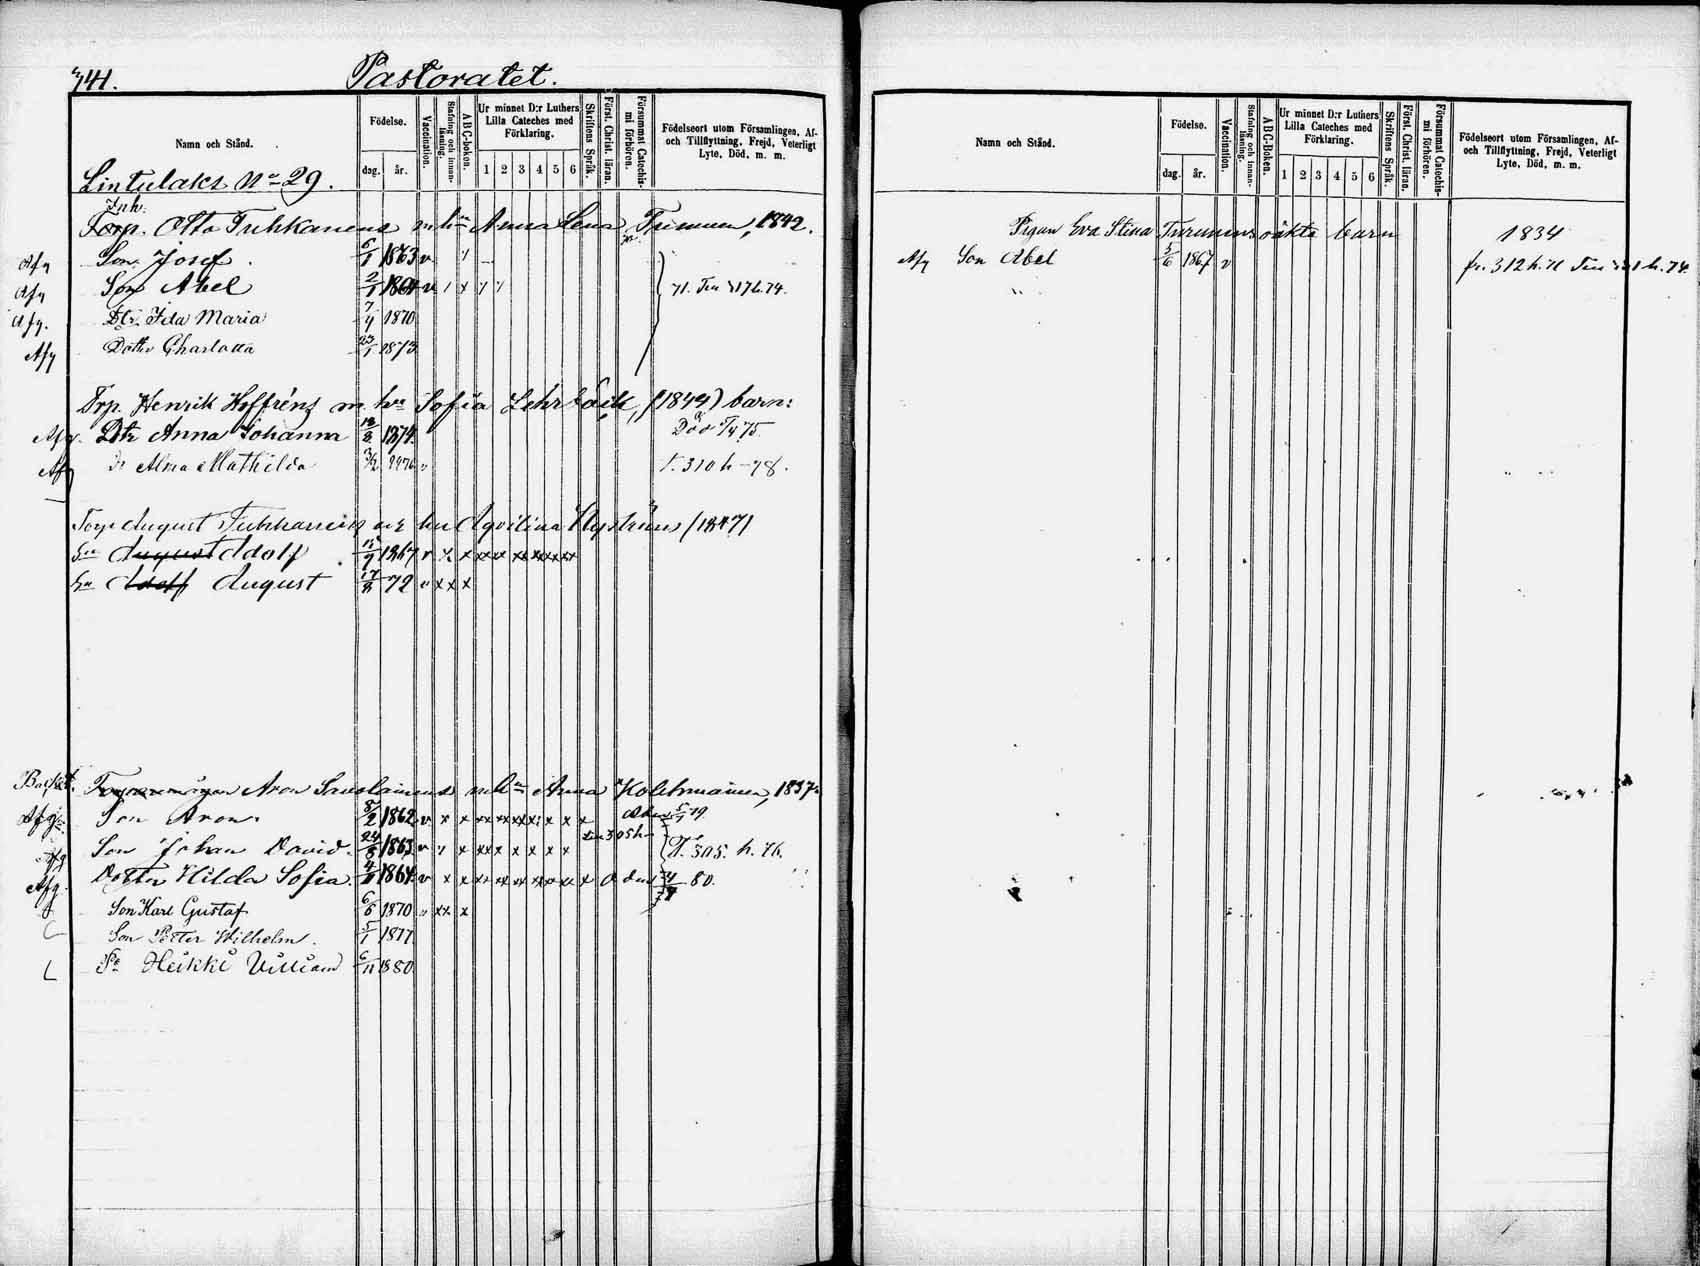 741.
Pastoratet.
Namn och Stånd.
Födelse.
dag.
år.
Vaccination.
Stafning och innanläsning.
ABC-boken.
Ur minnet D:r Luthers
Lilla Cateches med
Förklaring.
1 2 3 4 5 6
Skriftens Språk.
Först. Christ. läran.
Försummat Catechismi förhören.
Födelseort utom Församlingen, Af-
och Tillflyttning, Frejd, Veterligt
Lyte, Död, m. m.
Lintulaks No 29.
Inh.
Torp. Otto Tuhkanens m hu Anna Lena 1842.
Afg Son Josef. 6/1 1863 v
Afg Son Abel 2/1 1864 v 71. 176.74.
Afg. Dtr. Ida Maria 7/4 1870
Afg Dotter Charlotta 23/1 1873
Trp. Henrik Hoffréns m. hu Sofia Lehrbäck, (1844) barn:
Afg. Dtr Anna Johanna 1874 Död 75.
Afg Dr Alma Mathilda t. 310 h - 78.
Torp August Tuhkanens hu Aqvilina Nyström (1847)
Sn August Adolf 1867 v x x xx xx xx xx xx xx
Sn Adolf August 17/8 72 v x x x
Backst. Aron Savolainens m hu Anna Kolehmainen, 1837
Afg Son Aron. 8/2 1862 v x x 79
305 h
Afg Son Johan David. 24/8 1863 v t. 305. h. 76.
Afg. Dotter Hilda Sofia. 1864 v x x 80.
Son Karl Gustaf 6/6 1870 v xx x
Son Petter Wilhelm. 5/1 1877
Sn Heikki William 6/11 1880
Namn och Stånd.
Födelse.
dag.
år.
Vaccination.
Stafning och innanläsning.
ABC-Boken.
Ur minnet D:r Luthers
Lilla Cateches med
Förklaring.
1 2 3 4 5 6
Skriftens Språk.
Först. Christ. läran.
Försummat Catechismi förhören.
Födelseort utom Församlingen, Af-
och Tillflyttning, Frejd, Veterligt
Lyte, Död, m. m.
Pigan Eva Stina oäkta barn 1834
Afg Son Abel 1867 v fr. 312 h. 71 h. 74.